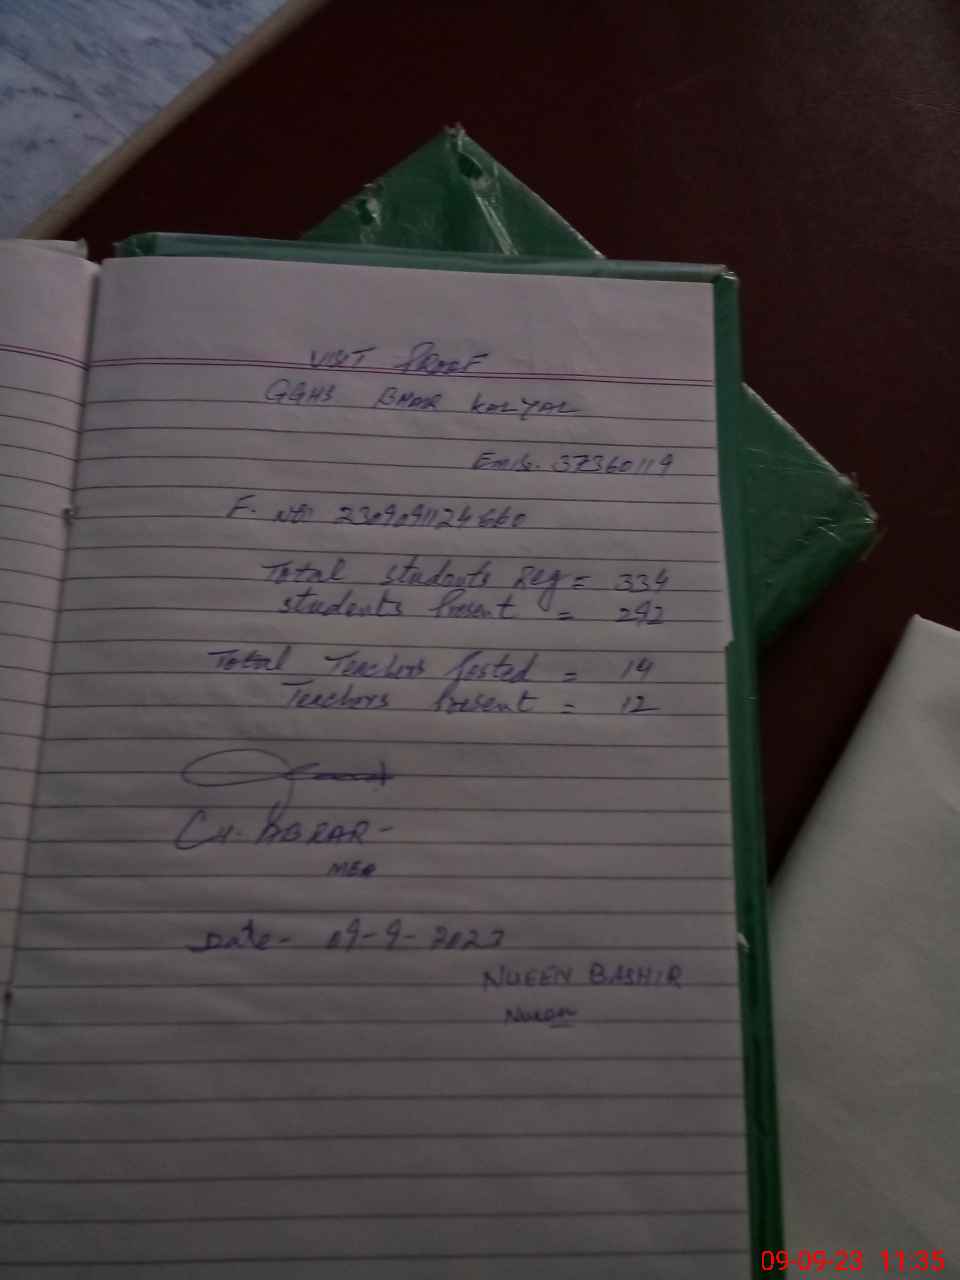 VISIT PROOF
GGHS BHAR KALYAL
Emis. 37360119
F. No: 2309091124660
Total students Reg = 334
students Present = 292
Total Teachers Posted = 14
Teachers Present = 12
CH. ABRAR -
MEA
Date - 09-9-2023
NUEEN BASHIR
09-09-23 11:35